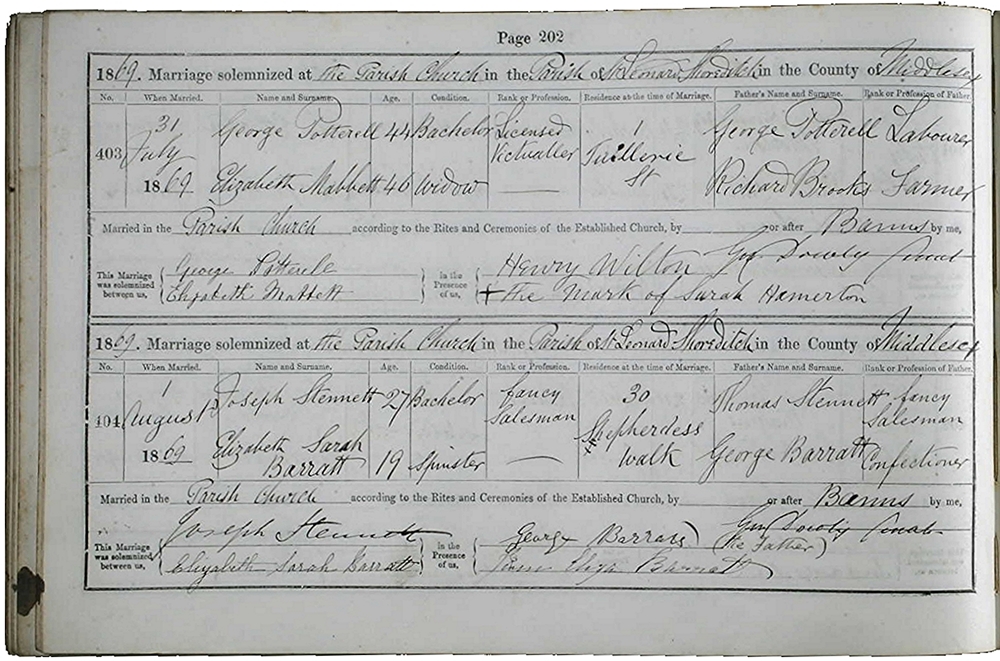 Page 202
1869. Marriage solemnized at the Parish Church in the Parish of St Leonard Shoreditch in the County of Middlesex
No. When Married. Name and Surname. Age. Condition. Rank or Profession. Residence at the time of Marriage. Father's Name and Surname. Rank or Profession of Father.
31 George Potterell 44 Bachelor Licensed 1 George Potterell Labourer
403 July Victualler Tuillerie
1869 Elizabeth Mabbett 46 Widow — St Richard Brooks Farmer
Married in the Parish Church according to the Rites and Ceremonies of the Established Church, by or after Banns by me,
George Potterell Henry Wilton Geo Dowby Curat
This Marriage was solemnized between us, In the Presence of us,
Elizabeth Mabbett + the Mark of Sarah Hamerton
1869. Marriage solemnized at the Parish Church in the Parish of St Leonard Shoreditch in the County of Middlesex
No. When Married. Name and Surname. Age. Condition. Rank or Profession. Residence at the time of Marriage. Father's Name and Surname. Rank or Profession of Father.
1 Joseph Stennett 27 Bachelor fancy 30 Thomas Stennett fancy
404 August Salesman Shepherdess Salesman
1869 Elizabeth Sarah Barratt 19 Spinster — Walk George Barratt Confectioner
Married in the Parish Church according to the Rites and Ceremonies of the Established Church, by or after Banns by me,
Joseph Stennett George Barratt (the Father)
This Marriage was solemnized between us, In the Presence of us,
Elizabeth Sarah Barratt Eliza Barratt